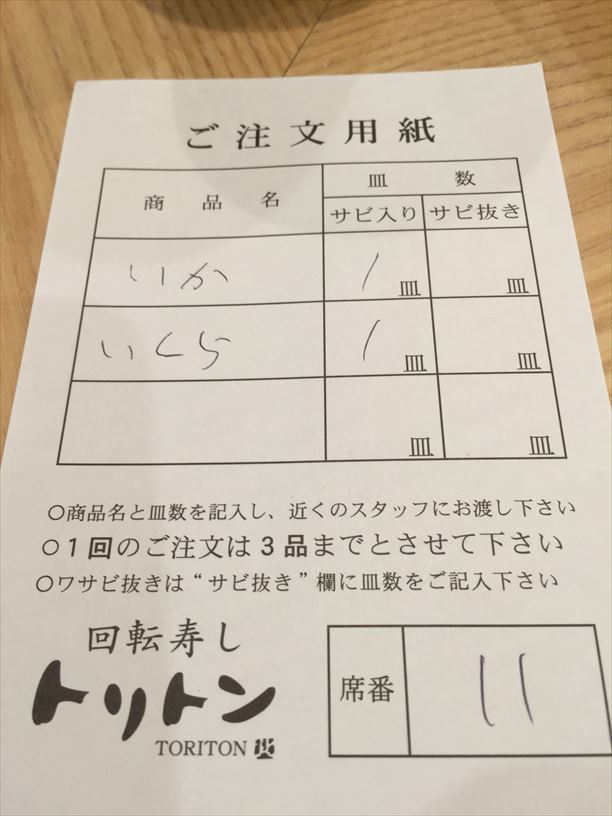 ご注文用紙
商品名 皿数
サビ入り サビ抜き
いか 1皿 皿
いくら 1皿 皿
皿 皿
○商品名と皿数を記入し、近くのスタッフにお渡し下さい
○1回のご注文は3品までとさせて下さい
○ワサビ抜きは“サビ抜き”欄に皿数をご記入下さい
回転寿し
トリトン
TORITON
席番 11